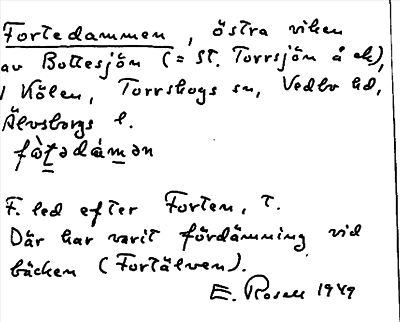 Fortedammen, östra viken
av Bottesjön (= St. Torrsjön å ek),
i Kölen, Torrskogs sn, Vedbo hd,
Älvsborgs l.
fòṯədám̱ən
F. led efter Forten, t.
Där har varit fördämning vid
bäcken (Fortälven).
E. Rosell 1949